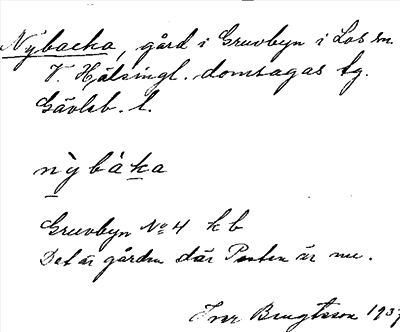 Nybacka, gård i Gruvbyn i Los sn.
V. Hälsingl. domsagas tg.
Gävleb. l.
nỳbàka
Gruvbyn No 4 kb
Det är gården där Posten är nu.
Ivar Bengtsson 1937